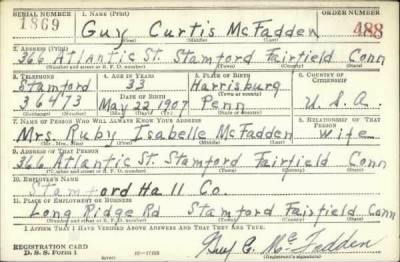 SERIAL NUMBER 1. NAME (Print) ORDER NUMBER
1869 Guy Curtis McFadden 488
(First) (Middle) (Last)
2. ADDRESS (Print)
366 Atlantic St. Stamford Fairfield Conn
(Number and street or R. F. D. number) (Town) (County) (State)
3. TELEPHONE 4. AGE IN YEARS 5. PLACE OF BIRTH 6. COUNTRY OF CITIZENSHIP
Stamford 33 Harrisburg
DATE OF BIRTH (Town or county)
36473 May 22 1907 Penn U.S.A.
7. NAME OF PERSON WHO WILL ALWAYS KNOW YOUR ADDRESS 8. RELATIONSHIP OF THAT PERSON
Mrs. Ruby Isabelle McFadden Wife
(Mr., Mrs., Miss) (First) (Middle) (Last)
9. ADDRESS OF THAT PERSON
366 Atlantic St. Stamford Fairfield Conn
(Number and street or R. F. D. number) (Town) (County) (State)
10. EMPLOYER'S NAME
Stamford Hall Co.
11. PLACE OF EMPLOYMENT OR BUSINESS
Long Ridge Rd Stamford Fairfield Conn
(Number and street or R. F. D. number) (Town) (County) (State)
I AFFIRM THAT I HAVE VERIFIED ABOVE ANSWERS AND THAT THEY ARE TRUE.
REGISTRATION CARD
D. S. S. Form 1 Guy C. McFadden
(Registrant's signature)